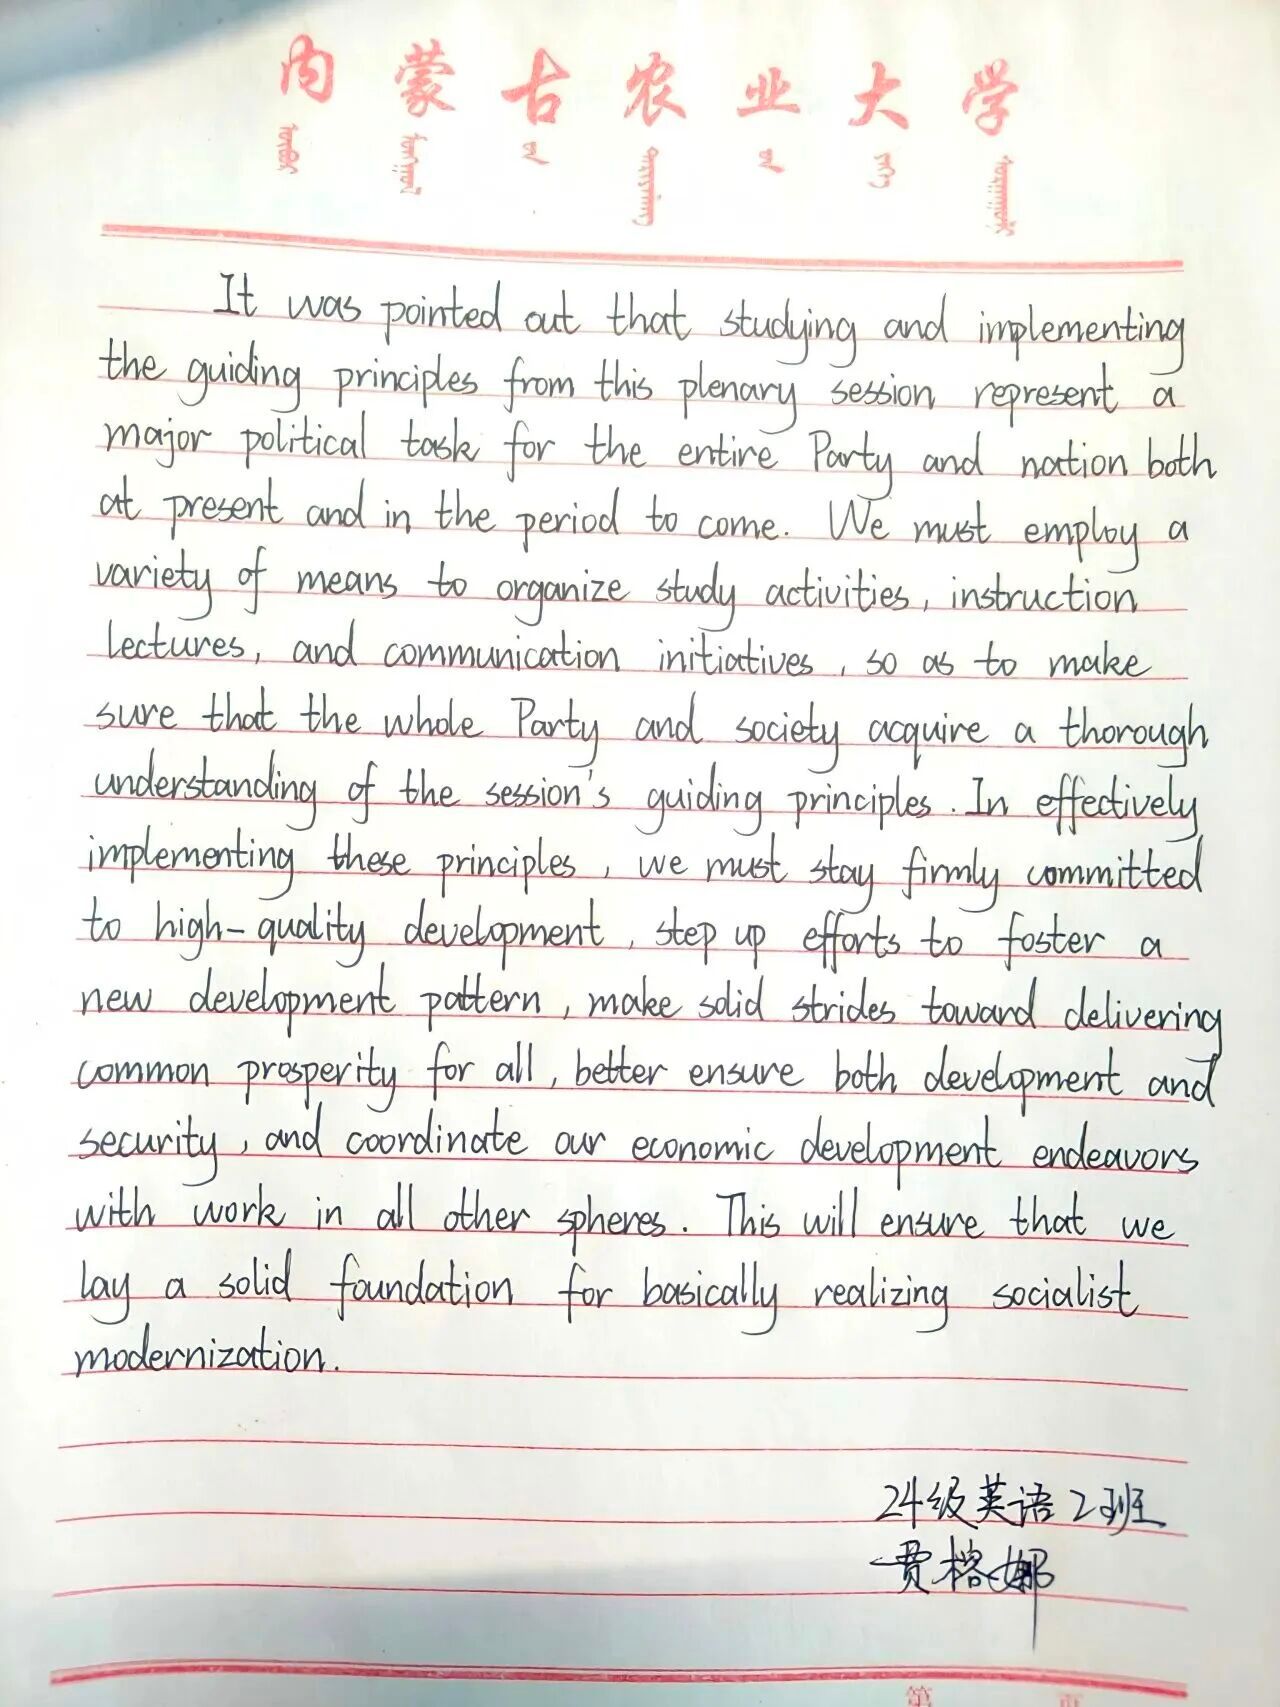 内蒙古农业大学
It was pointed out that studying and implementing
the guiding principles from this plenary session represent a
major political task for the entire Party and nation both
at present and in the period to come. We must employ a
variety of means to organize study activities, instruction
lectures, and communication initiatives, so as to make
sure that the whole Party and society acquire a thorough
understanding of the session's guiding principles. In effectively
implementing these principles, we must stay firmly committed
to high-quality development, step up efforts to foster a
new development pattern, make solid strides toward delivering
common prosperity for all, better ensure both development and
security, and coordinate our economic development endeavors
with work in all other spheres. This will ensure that we
lay a solid foundation for basically realizing socialist
modernization.
24级英语2班
贾榕娜
第 页